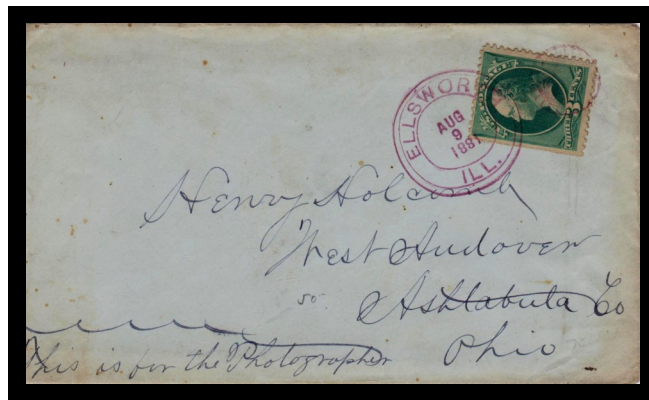 ELLSWOR
AUG
9
1881
ILL.
POSTAGE
THREE 3 CENTS
Henry Holcomb
West Andover
so. Ashtabula Co
Ohio
This is for the Photographer